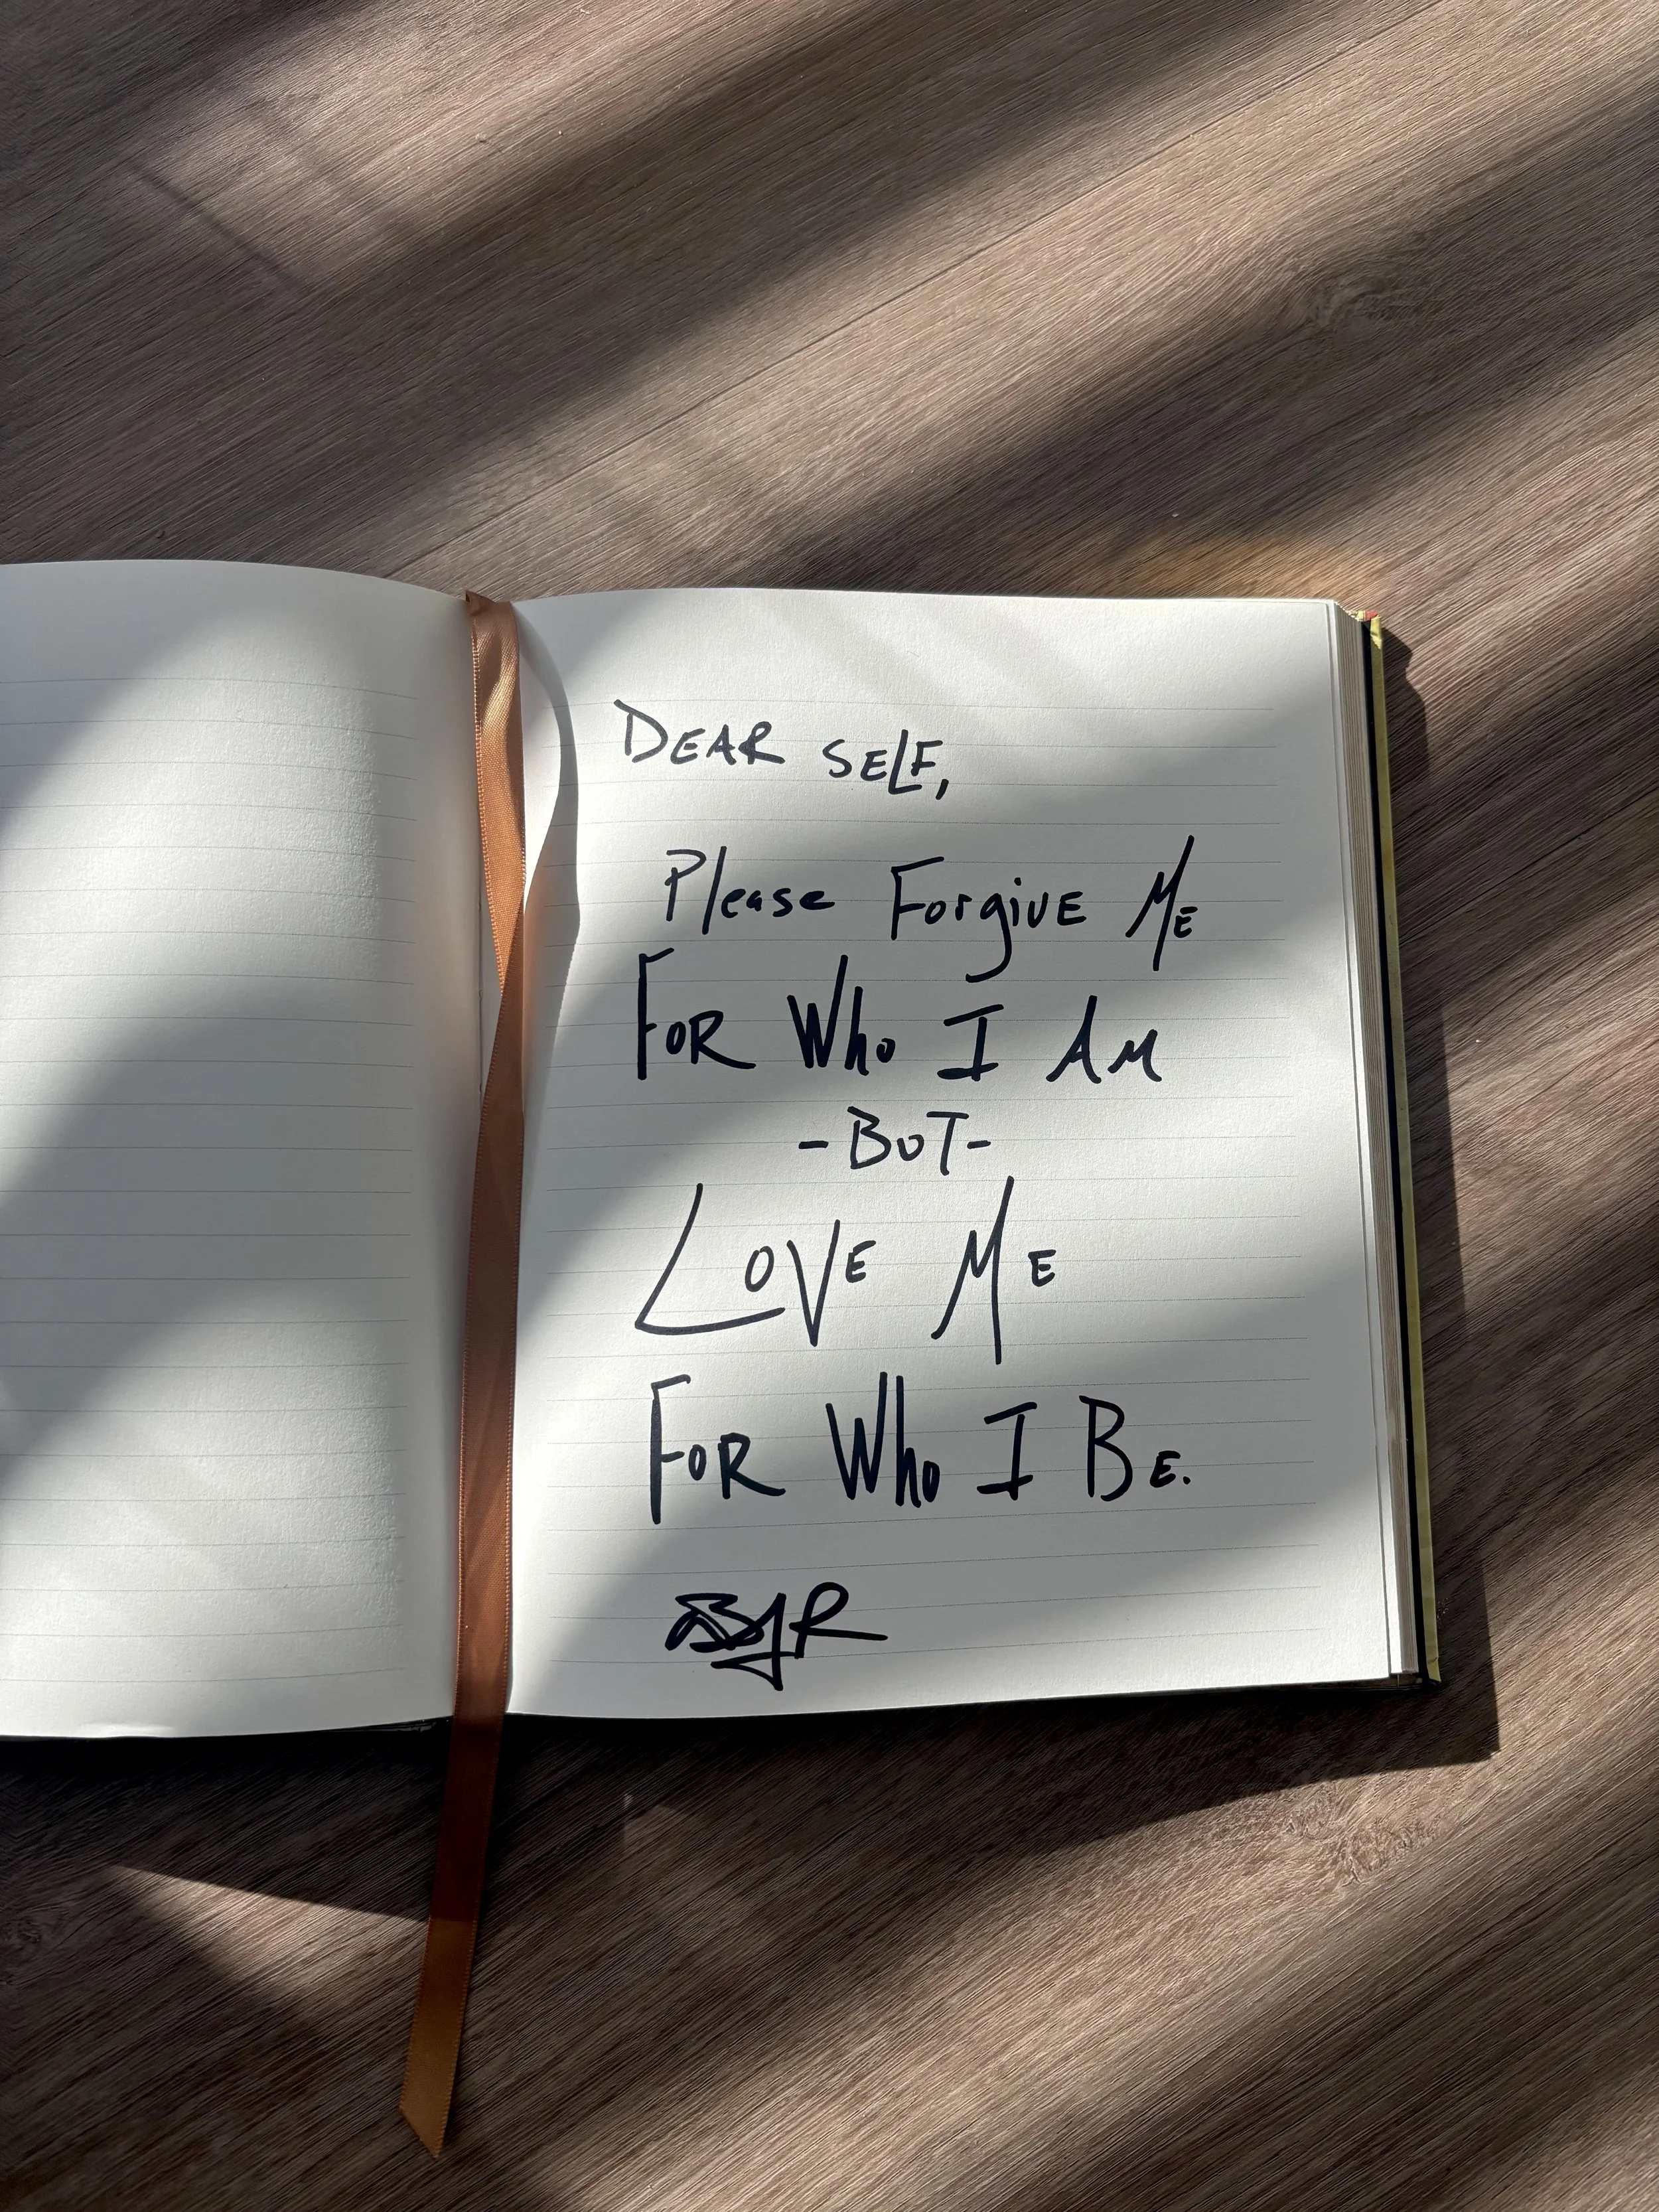 DEAR SELF,
Please ForgivE ME
FOR Who I AM
-BUT-
LOVE ME
FOR Who I BE.